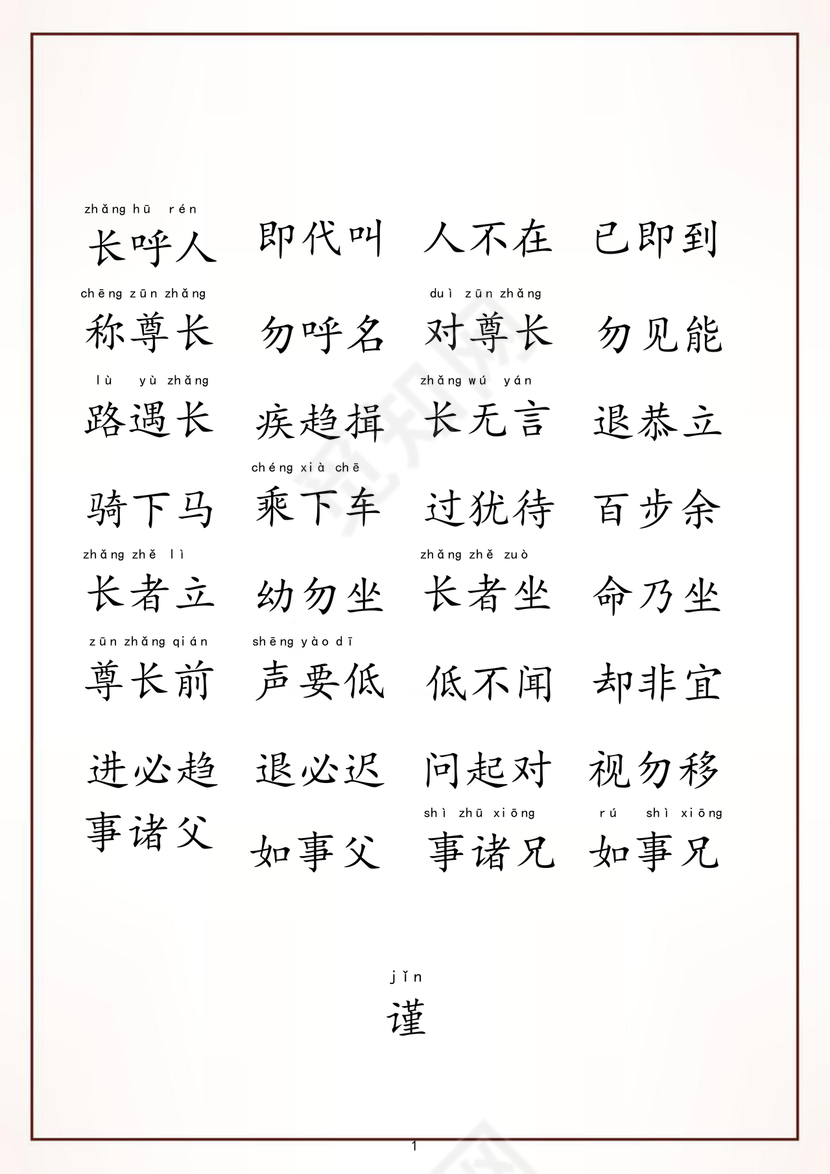 zhǎng hū rén
长呼人 即代叫 人不在 已即到
chēng zūn zhǎng duì zūn zhǎng
称尊长 勿呼名 对尊长 勿见能
lù yù zhǎng zhǎng wú yán
路遇长 疾趋揖 长无言 退恭立
chéng xià chē
骑下马 乘下车 过犹待 百步余
zhǎng zhě lì zhǎng zhě zuò
长者立 幼勿坐 长者坐 命乃坐
zūn zhǎng qián shēng yào dī
尊长前 声要低 低不闻 却非宜
进必趋 退必迟 问起对 视勿移
shì zhū xiōng rú shì xiōng
事诸父 如事父 事诸兄 如事兄
jǐn
谨
1
觅知网